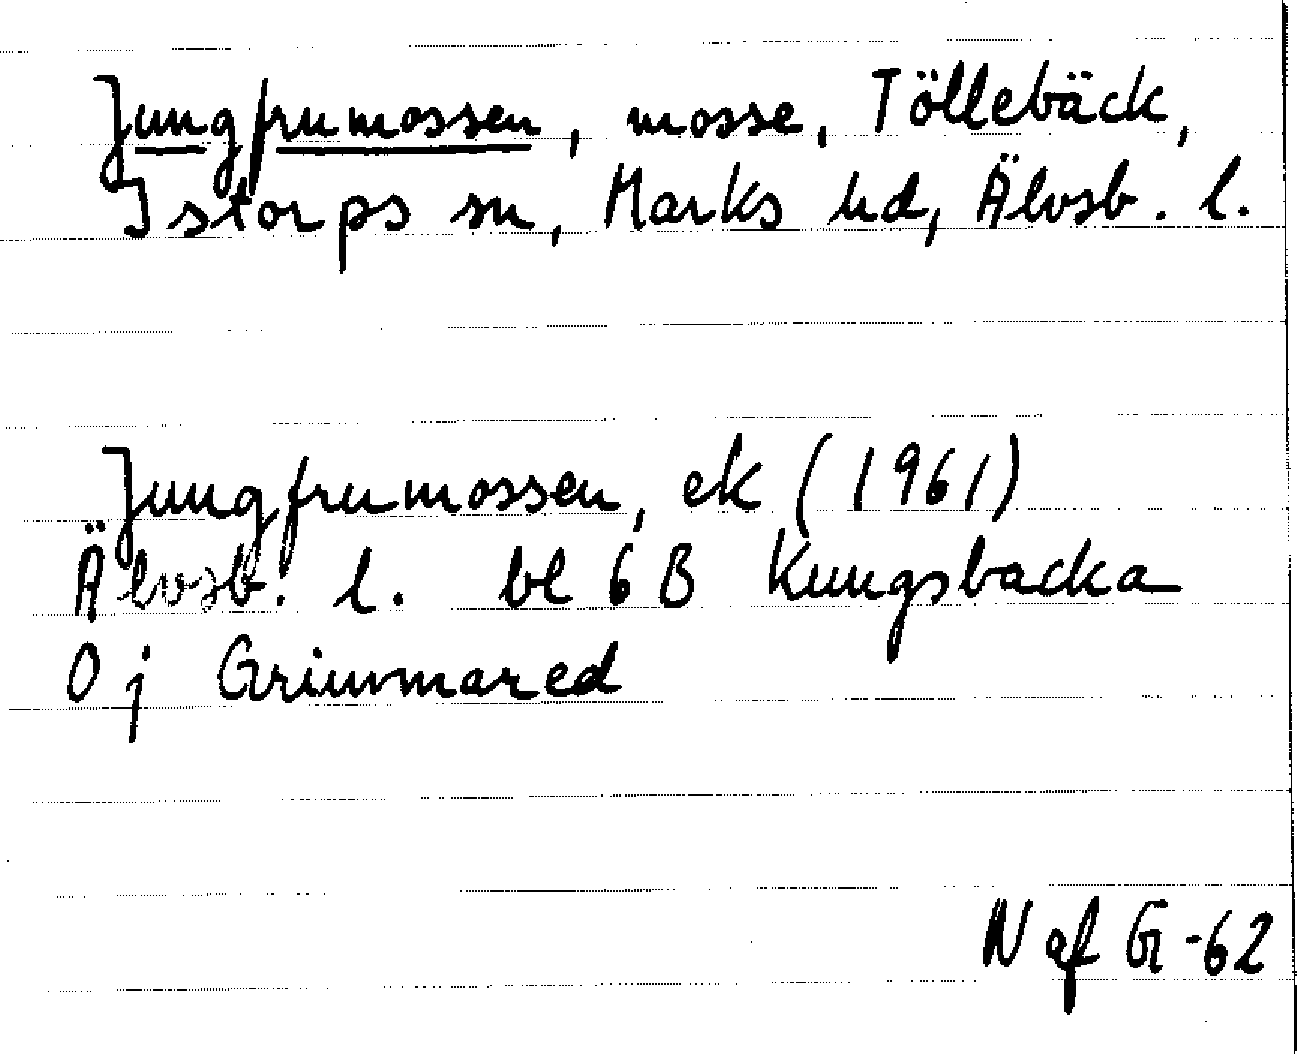 Jungfrumossen, mosse, Töllebäck,
Istorps sn, Marks hd, Älvsb. l.
Jungfrumossen, ek (1961)
Älvsb. l. bl 6 B Kungsbacka
0 j Grimmared
N af G -62